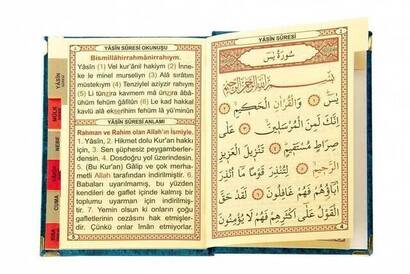 YÂSÎN SÛRESİ OKUNUŞU
Bismillâhirrahmânirrahıym.
Yâsîn (1) Vel kur'ânil hakiym (2) İnne-
ke le minel murseliyn (3) Alâ sırâtım
müstekıym (4) Tenziylel aziyzir rahıym
(5) Li tünzira kavmem mâ ünzira âbâ-
ühüm fehüm ğâfilûn (6) Le kad hakkal
kavlü alâ ekserihim fehüm lâ yü'minûn
YÂSÎN SÛRESİ ANLAMI
Rahman ve Rahim olan Allah'ın İsmiyle.
1. Yâsîn, 2. Hikmet dolu Kur'an hakkı
için, 3. Sen şüphesiz peygamberler-
densin. 4. Dosdoğru yol üzerindesin.
5. (Bu Kur'an) Gâlip ve çok merha-
metli Allah tarafından indirilmiştir. 6.
Babaları uyarılmamış, bu yüzden
kendileri de gaflet içinde kalmış bir
toplumu uyarman için indirilmiştir.
7. Yemin olsun ki onların çoğu
gafletlerinin cezasını hak etmişler-
dir. Çünkü onlar İman etmiyorlar.
YÂSÎN
MÜLK
NEBE
CUMA
سُورَةُ يٰسٓ
بِسْمِ اللّٰهِ الرَّحْمٰنِ الرَّحِيمِ
يٰسٓ ﴿١﴾ وَالْقُرْاٰنِ الْحَكِيمِ ﴿٢﴾
اِنَّكَ لَمِنَ الْمُرْسَلِينَ ﴿٣﴾ عَلٰى
صِرَاطٍ مُسْتَقِيمٍ ﴿٤﴾ تَنْزِيلَ الْعَزِيزِ
الرَّحِيمِ ﴿٥﴾ لِتُنْذِرَ قَوْمًا مَا اُنْذِرَ
اٰبَاؤُهُمْ فَهُمْ غَافِلُونَ ﴿٦﴾ لَقَدْ حَقَّ
الْقَوْلُ عَلٰى اَكْثَرِهِمْ فَهُمْ لَا يُؤْمِنُونَ
4